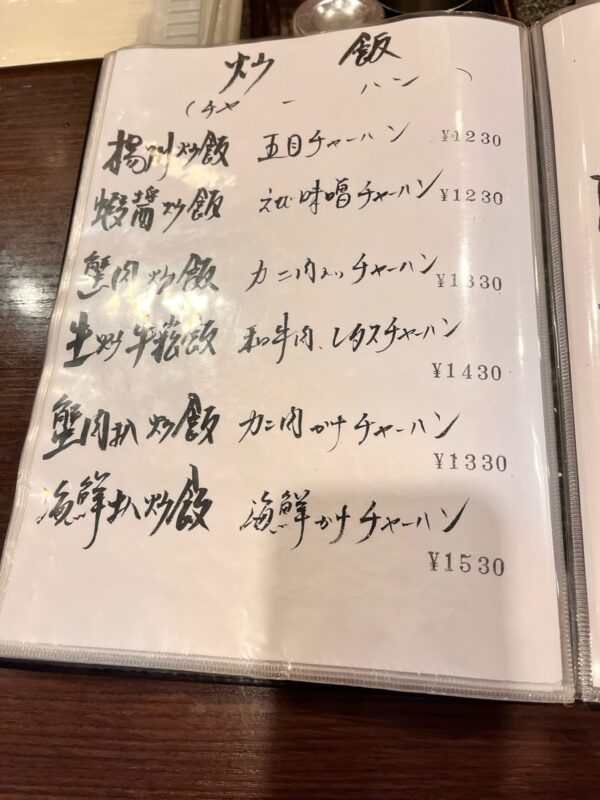 炒飯
(チャーハン)
揚州炒飯 五目チャーハン ¥1230
蝦醤炒飯 えび味噌チャーハン ¥1230
蟹肉炒飯 カニ肉入りチャーハン ¥1330
生炒牛菘飯 和牛肉、レタスチャーハン
¥1430
蟹肉扒炒飯 カニ肉かけチャーハン
¥1330
海鮮扒炒飯 海鮮かけチャーハン
¥1530